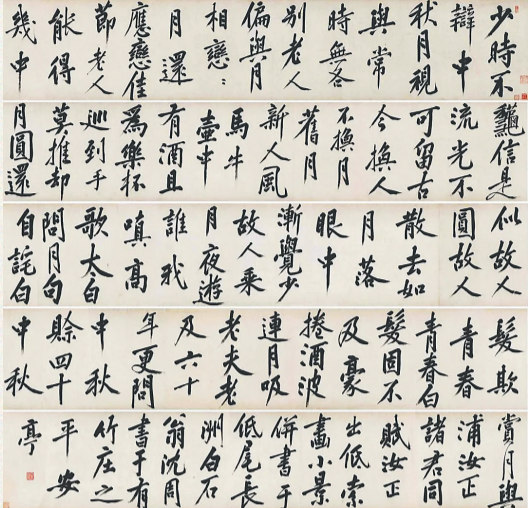 少時不
辯中
秋月視
與常
時無各
別老人
偏與月
相戀〻
月還
應戀佳
節老人
能得
幾中
龝信是
流光不
可留古
今換人
不換月
舊月
新人風
馬牛
壺中
有酒且
為樂杯
巡到手
莫推却
月圓還
似故人
圓故人
散去如
月落
眼中
漸覺少
故人乘
月夜遊
誰我
嗔高
歌太白
問月句
自詫白
髮欺
青春
青春白
髮固不
及豪
捲酒波
連月吸
老夫老
及六十
年更問
中秋
賒四十
中秋
賞月與
浦汝正
諸君同
賦汝正
出低索
畫小景
併書于
低尾長
洲白石
翁沈周
書于有
竹庄之
平安
亭